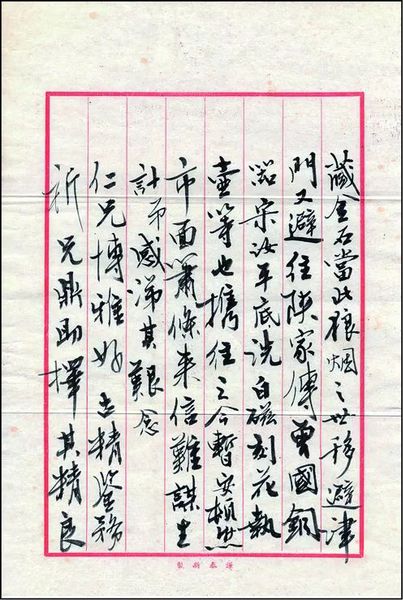 藏金石當此狼烟之世移避津
門又避往陝家傳曾國銅
器宋汝平底洗白磁刻花執
壺等也携往之今暫安頓然
市面蕭條来信難謀生
計弟感涕其艱念
仁兄博雅好古精鑒務
祈兄鼎助擇其精良